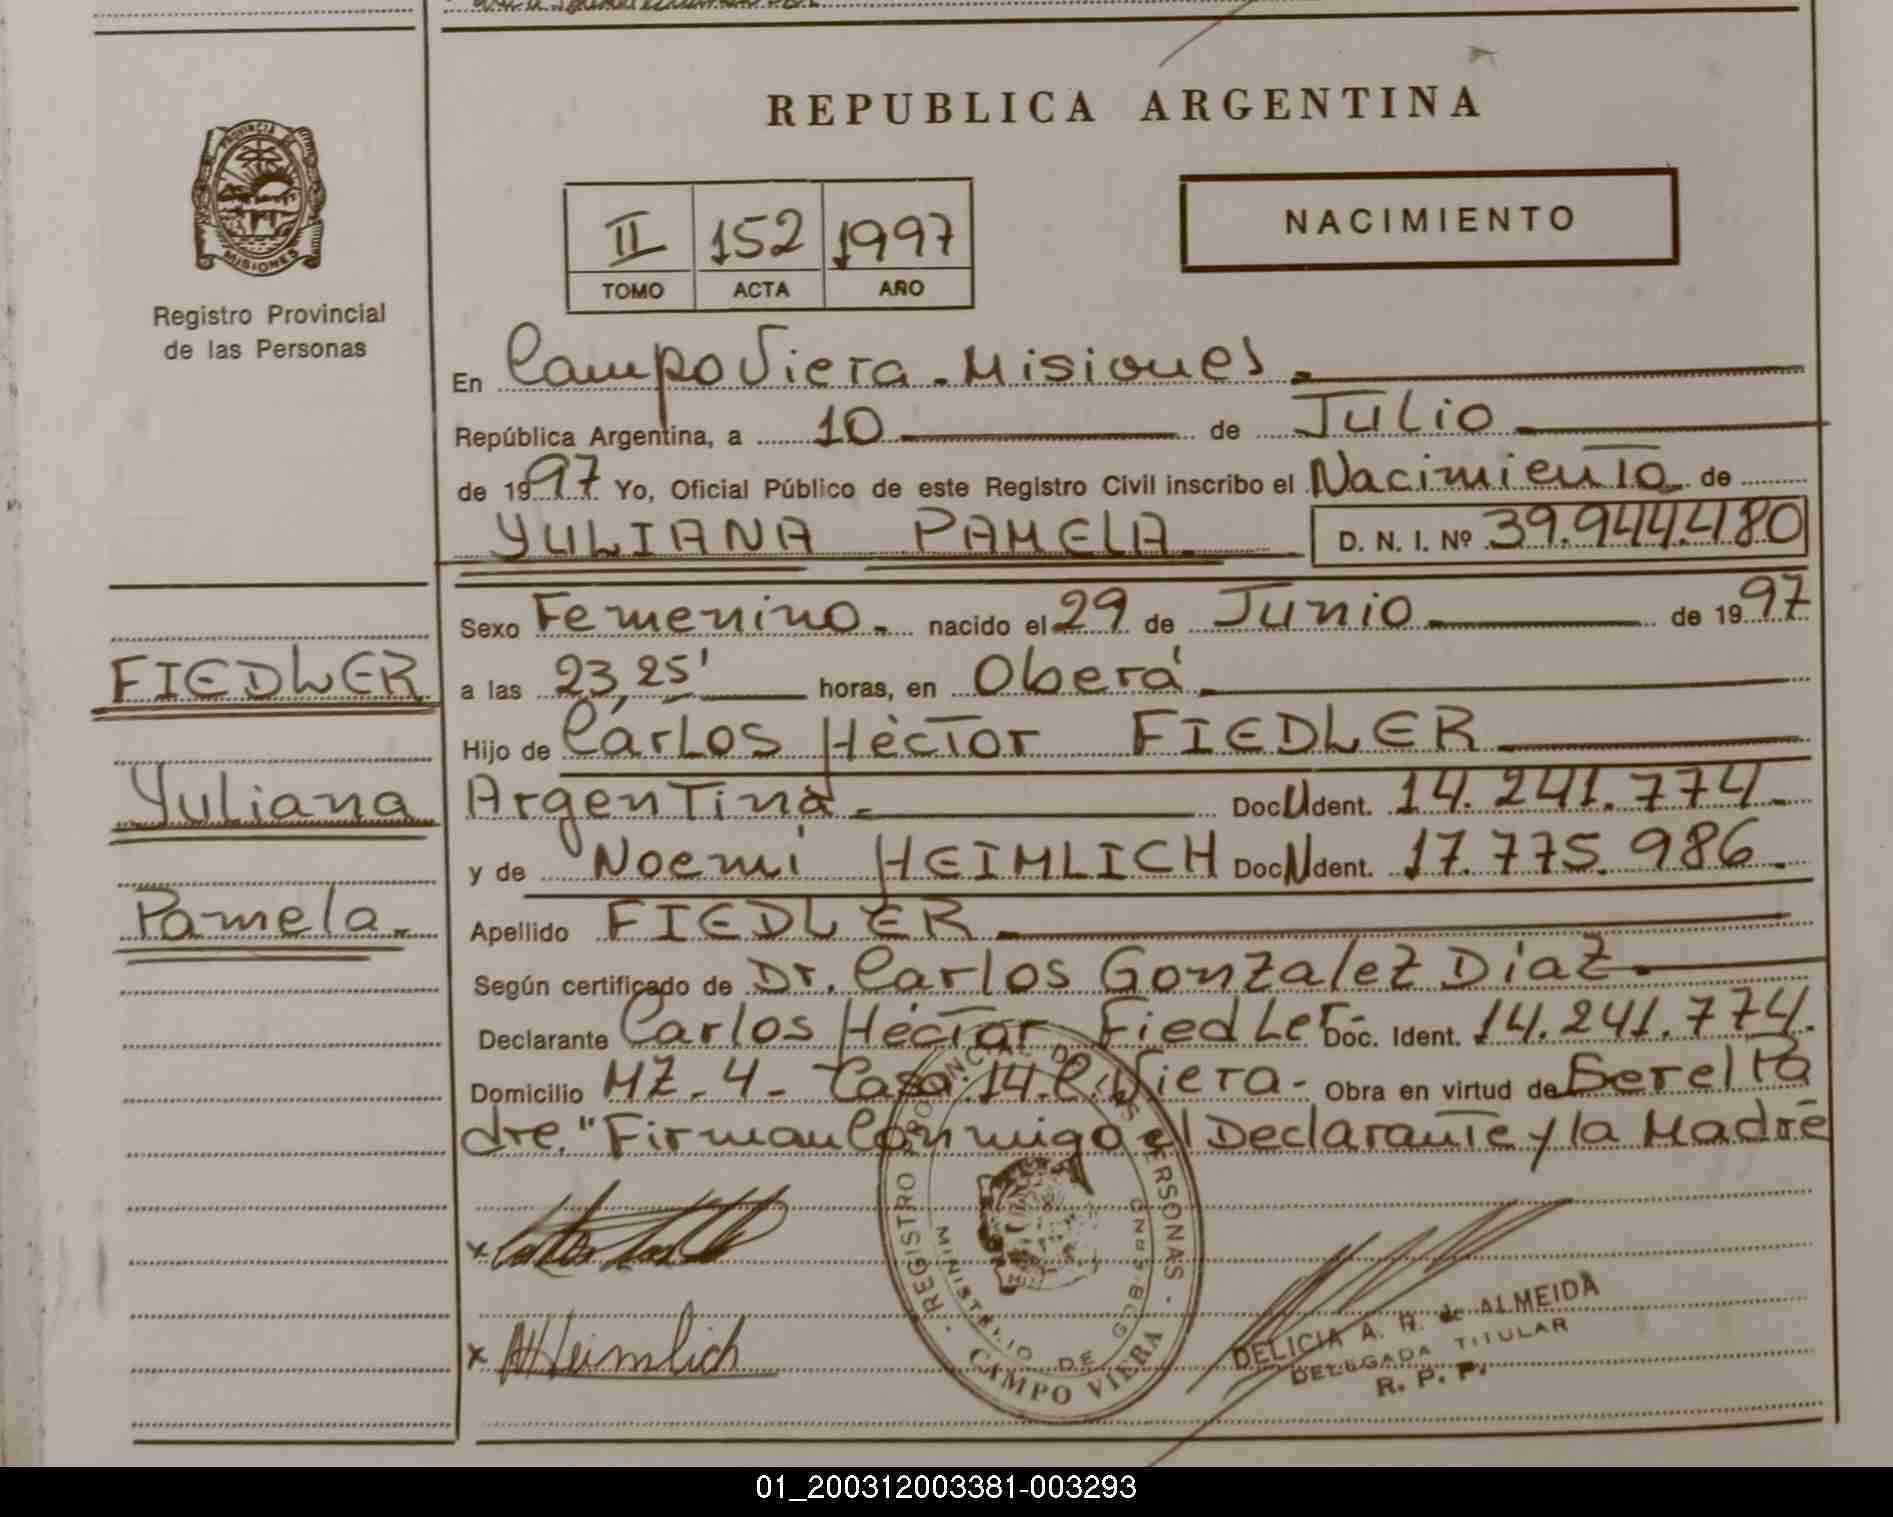 REPUBLICA ARGENTINA
PROVINCIA DE
MISIONES
Registro Provincial
de las Personas
II 152 1997
TOMO ACTA AÑO
NACIMIENTO
En Campo Viera - Misiones.
República Argentina, a 10 de Julio
de 1997 Yo, Oficial Público de este Registro Civil inscribo el Nacimiento de
YULIANA PAMELA D. N. I. Nº 39.944.480
Sexo Femenino. nacido el 29 de Junio de 1997
FIEDLER
a las 23,25' horas, en Oberá
Hijo de Carlos Héctor FIEDLER
Yuliana
Argentina. Doc U Ident. 14.241.774.
y de Noemi HEIMLICH Doc N Ident. 17.775.986.
Pamela.
Apellido FIEDLER
Según certificado de Dr. Carlos Gonzalez Diaz
Declarante Carlos Héctor Fiedler Doc. Ident. 14.241.774.
Domicilio MZ-4- Casa 14.C. Viera- Obra en virtud de Ser el Pa
dre." Firman Conmigo el Declarante y la Madre
x
x AHeimlich
REGISTRO PROVINCIAL DE LAS PERSONAS
MINISTERIO DE GOBIERNO
CAMPO VIERA
DELICIA A. H. de ALMEIDA
DELEGADA TITULAR
R. P. P.
01_200312003381-003293